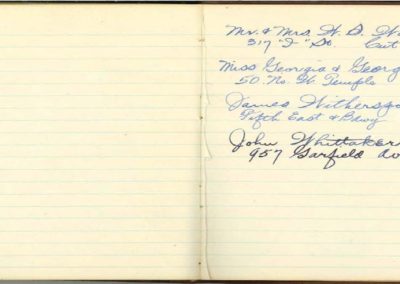 Mr. & Mrs. H. D.
317 "I" So.
Miss Georgia & Georg
50. No. W. Temple
James Withersp
Fifth East & Bdwy
John Whittaker
957 Garfield Av